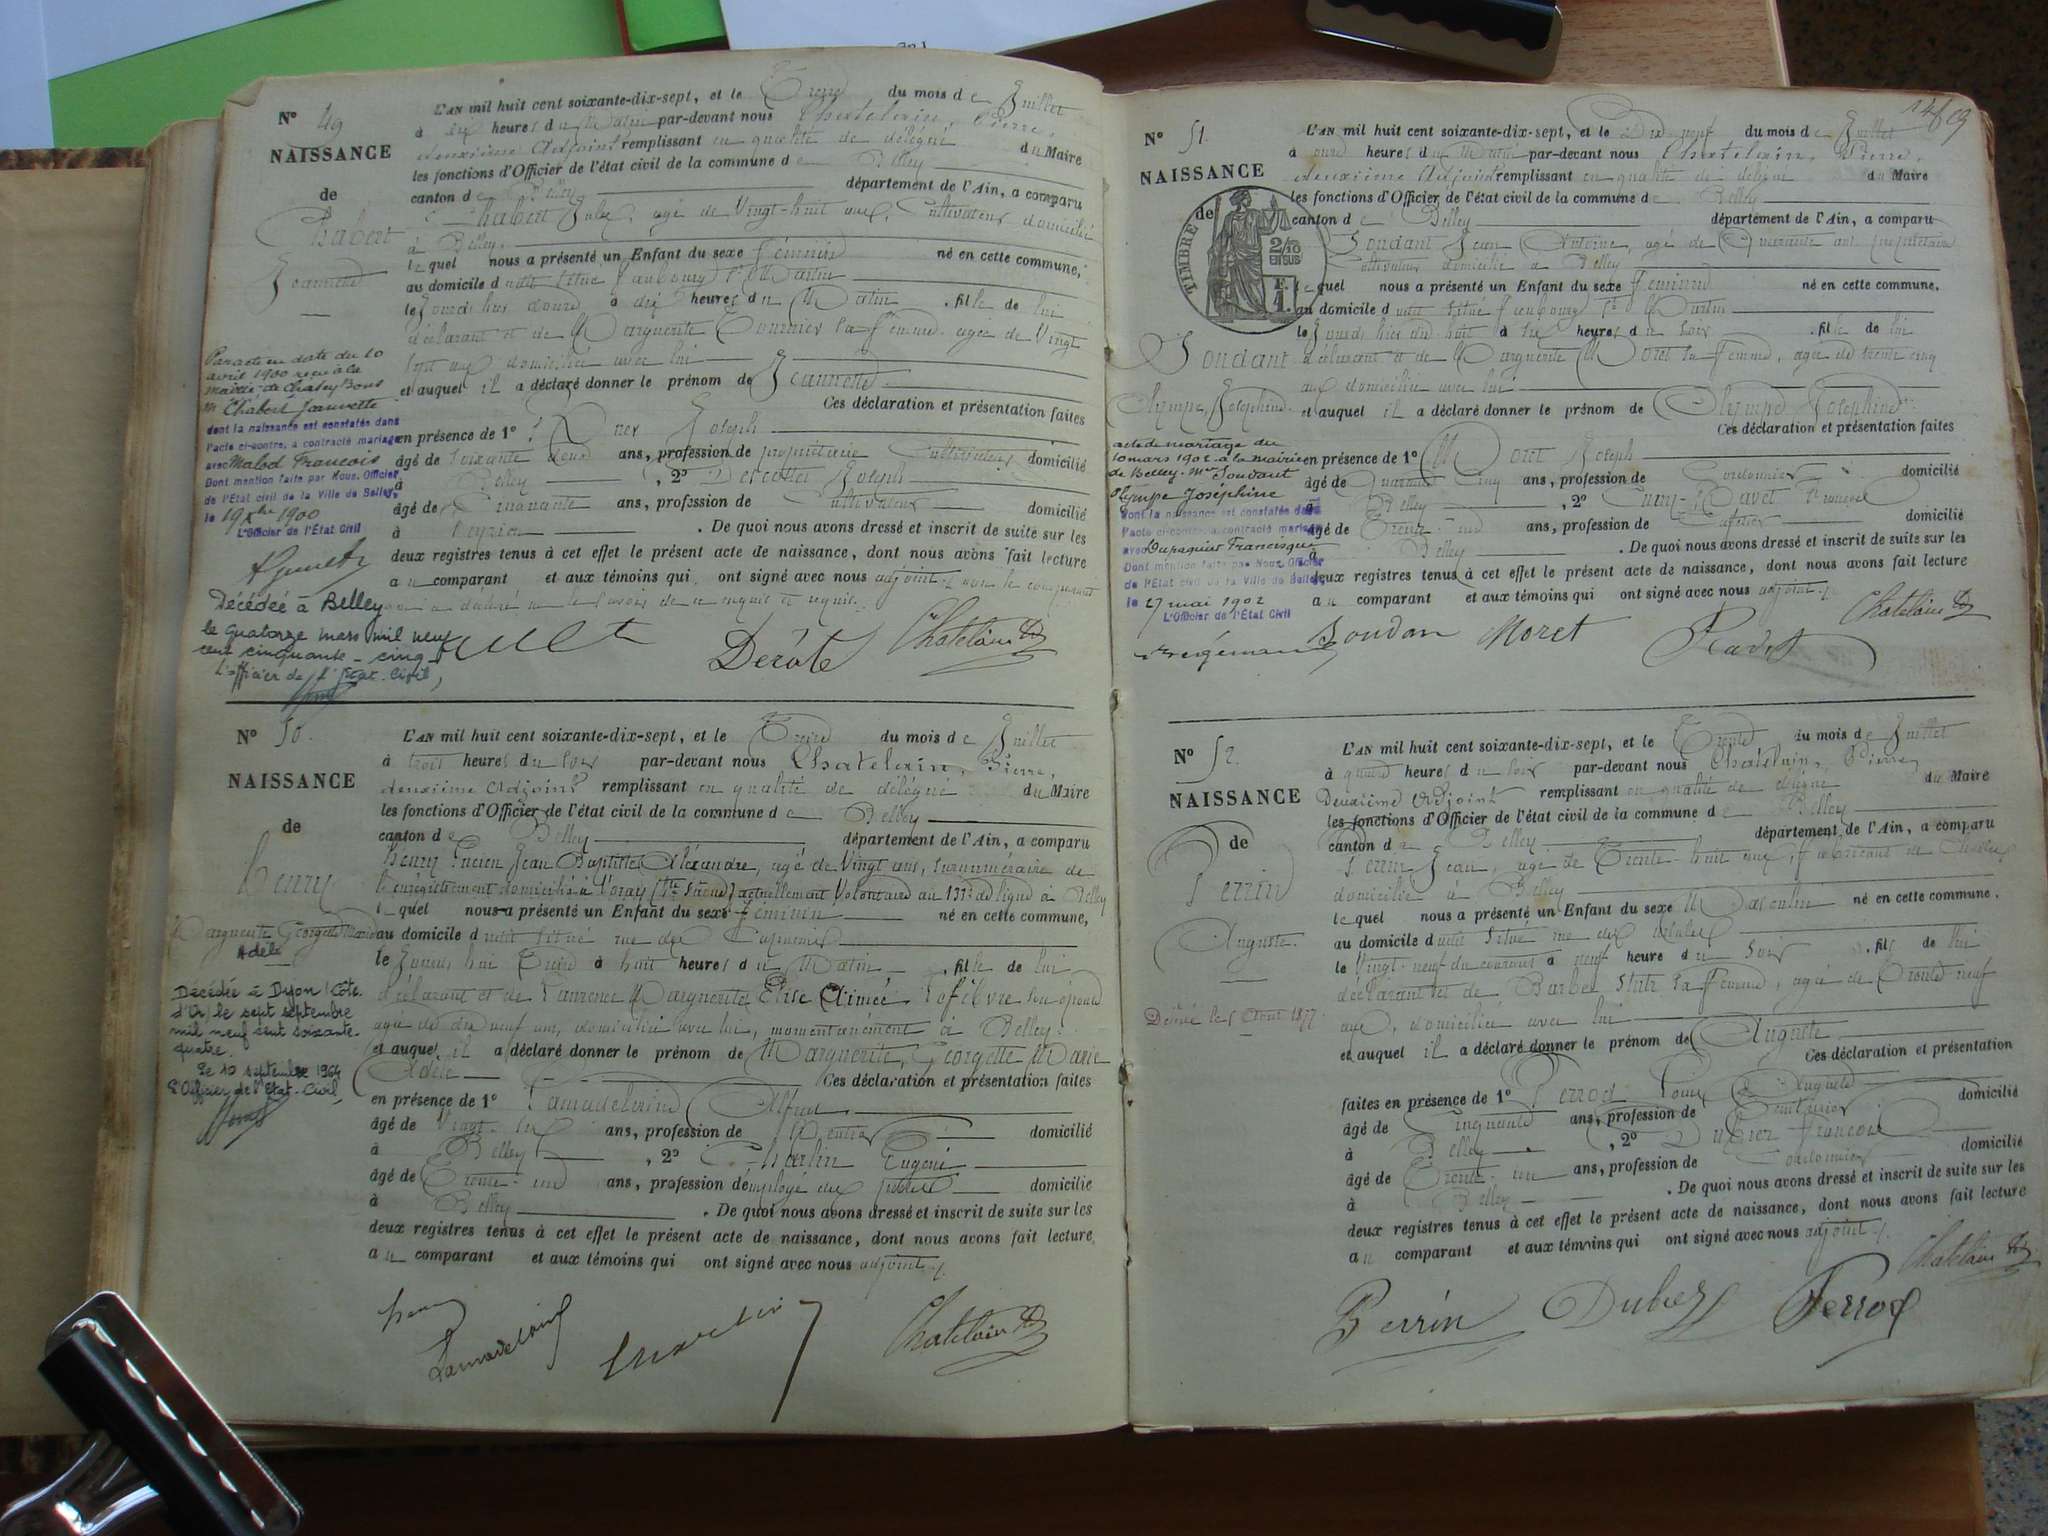 N° 49
NAISSANCE
de
Chabert
Jeannette
L'AN mil huit cent soixante-dix-sept, et le Treize du mois de Juillet
à dix heures du Matin par-devant nous Chatelain, Pierre,
deuxième Adjoint remplissant en qualité de délégué du Maire
les fonctions d'Officier de l'état civil de la commune de Belley
canton de Belley département de l'Ain, a comparu
Chabert Jules, agé de Vingt-huit ans, Cultivateur domicilié
à Belley.
lequel nous a présenté un Enfant du sexe féminin né en cette commune,
au domicile dudit situé faubourg St Martin
le jourd'hui à dix heures du Matin, fille de lui
déclarant et de Marguerite sa femme, agée de Vingt
sept ans domiciliée avec lui
et auquel il a déclaré donner le prénom de Jeannette
Ces déclaration et présentation faites
en présence de 1° Joseph
âgé de Soixante deux ans, profession de propriétaire Cultivateur domicilié
à Belley, 2° Joseph
âgé de Cinquante ans, profession de Cultivateur domicilié
à Peyrieu. De quoi nous avons dressé et inscrit de suite sur les
deux registres tenus à cet effet le présent acte de naissance, dont nous avons fait lecture
au comparant et aux témoins qui ont signé avec nous adjoint, non le comparant
qui a déclaré ne le savoir de ce enquis et requis.
Par acte en date du 10
avril 1900 reçu à la
mairie de Chazey Bons
Mlle Chabert Jeannette
dont la naissance est constatée dans
l'acte ci-contre, a contracté mariage
avec Malod François
Dont mention faite par Nous, Officier
de l'État civil de la Ville de Belley,
le 19 1900
L'Officier de l'État Civil
Décédée à Belley
le quatorze mars mil neuf
cent cinquante-cinq
L'officier de l'Etat-Civil,
Chatelain
N° 50.
NAISSANCE
de
henry
Marguerite Georgette Marie
Adèle
L'AN mil huit cent soixante-dix-sept, et le Treize du mois de Juillet
à trois heures du soir par-devant nous Chatelain, Pierre,
deuxième Adjoint remplissant en qualité de délégué du Maire
les fonctions d'Officier de l'état civil de la commune de Belley
canton de Belley département de l'Ain, a comparu
henry Lucien Jean Baptiste Alexandre, agé de Vingt ans, surnuméraire de
l'enregistrement domicilié à Voray (Hte Saône) actuellement Volontaire au 133e de ligne à Belley
lequel nous a présenté un Enfant du sexe féminin né en cette commune,
au domicile dudit situé rue des Capucins
le jourd'hui Treize à huit heures du Matin, fille de lui
déclarant et de Laurence Marguerite Elise Aimée Lefèbvre son épouse
agée de dix neuf ans, domiciliée avec lui, momentanément à Belley.
et auquel il a déclaré donner le prénom de Marguerite, Georgette Marie
Adèle Ces déclaration et présentation faites
en présence de 1° Lamadeleine Alfred
âgé de Vingt-six ans, profession de domicilié
à Belley, 2° Eugène
âgé de Trente-un ans, profession de employé des postes domicilié
à Belley. De quoi nous avons dressé et inscrit de suite sur les
deux registres tenus à cet effet le présent acte de naissance, dont nous avons fait lecture
au comparant et aux témoins qui ont signé avec nous adjoint
Décédée à Dijon (Côte
d'Or) le sept septembre
mil neuf cent soixante-
quatre.
Le 10 septembre 1964
L'Officier de l'Etat-Civil,
Lamadeleine
Chatelain
N° 51.
NAISSANCE
de
TIMBRE
2/10
EN SUS
F.
1.
Soudant
Olympe, Joséphine.
L'AN mil huit cent soixante-dix-sept, et le Dix neuf du mois de Juillet
à onze heures du Matin par-devant nous Chatelain, Pierre,
deuxième Adjoint remplissant en qualité de délégué du Maire
les fonctions d'Officier de l'état civil de la commune de Belley
canton de Belley département de l'Ain, a comparu
Soudant Jean Antoine, agé de Quarante ans, propriétaire
Cultivateur domicilié à Belley
lequel nous a présenté un Enfant du sexe féminin né en cette commune.
au domicile dudit situé faubourg St Martin
le dix huit à six heures du soir, fille de lui
déclarant et de Marguerite Moret sa femme, agée de trente cinq
ans domiciliée avec lui
et auquel il a déclaré donner le prénom de Olympe Joséphine
Ces déclaration et présentation faites
en présence de 1° Moret Joseph
âgé de Quarante Cinq ans, profession de Cordonnier domicilié
à Belley, 2°
âgé de Trente-un ans, profession de domicilié
à Belley. De quoi nous avons dressé et inscrit de suite sur les
deux registres tenus à cet effet le présent acte de naissance, dont nous avons fait lecture
au comparant et aux témoins qui ont signé avec nous adjoint
acte de mariage du
10 mars 1902 à la mairie
de Belley. Mlle Soudant
Olympe Joséphine
dont la naissance est constatée dans
l'acte ci-contre, a contracté mariage
avec Dupasquier Francisque
Dont mention faite par Nous, Officier
de l'État civil de la Ville de Belley,
le 27 mai 1902
L'Officier de l'État Civil
Soudan Moret
Chatelain
N° 52.
NAISSANCE
de
Perrin
Auguste.
L'AN mil huit cent soixante-dix-sept, et le Trente du mois de Juillet
à quatre heures du soir par-devant nous Chatelain, Pierre,
Deuxième Adjoint remplissant en qualité de délégué du Maire
les fonctions d'Officier de l'état civil de la commune de Belley
canton de Belley département de l'Ain, a comparu
Perrin Jean, agé de Trente-huit ans, fabricant de
domicilié à Belley
lequel nous a présenté un Enfant du sexe Masculin né en cette commune.
au domicile dudit situé rue des
le Vingt-neuf du courant à neuf heures du soir, fils de lui
déclarant et de Barbe sa femme, agée de Trente neuf
ans, domiciliée avec lui
et auquel il a déclaré donner le prénom de Auguste
Ces déclaration et présentation
faites en présence de 1° Perrod Louis Auguste domicilié
âgé de Cinquante ans, profession de
à Belley, 2° Dubiez François domicilié
âgé de Trente-un ans, profession de Cordonnier
à Belley. De quoi nous avons dressé et inscrit de suite sur les
deux registres tenus à cet effet le présent acte de naissance, dont nous avons fait lecture
au comparant et aux témoins qui ont signé avec nous adjoint
Décédé le Août 1877
Perrin Dubiez Perrod
Chatelain